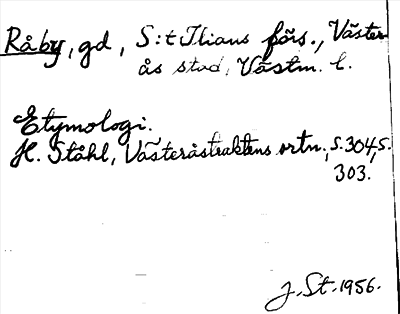 Råby, gd, S:t Ilians förs., Väster-
ås stad, Västm. l.
Etymologi.
H. Ståhl, Västeråstraktens ortn., s. 304, s.
303.
J. St. 1956.